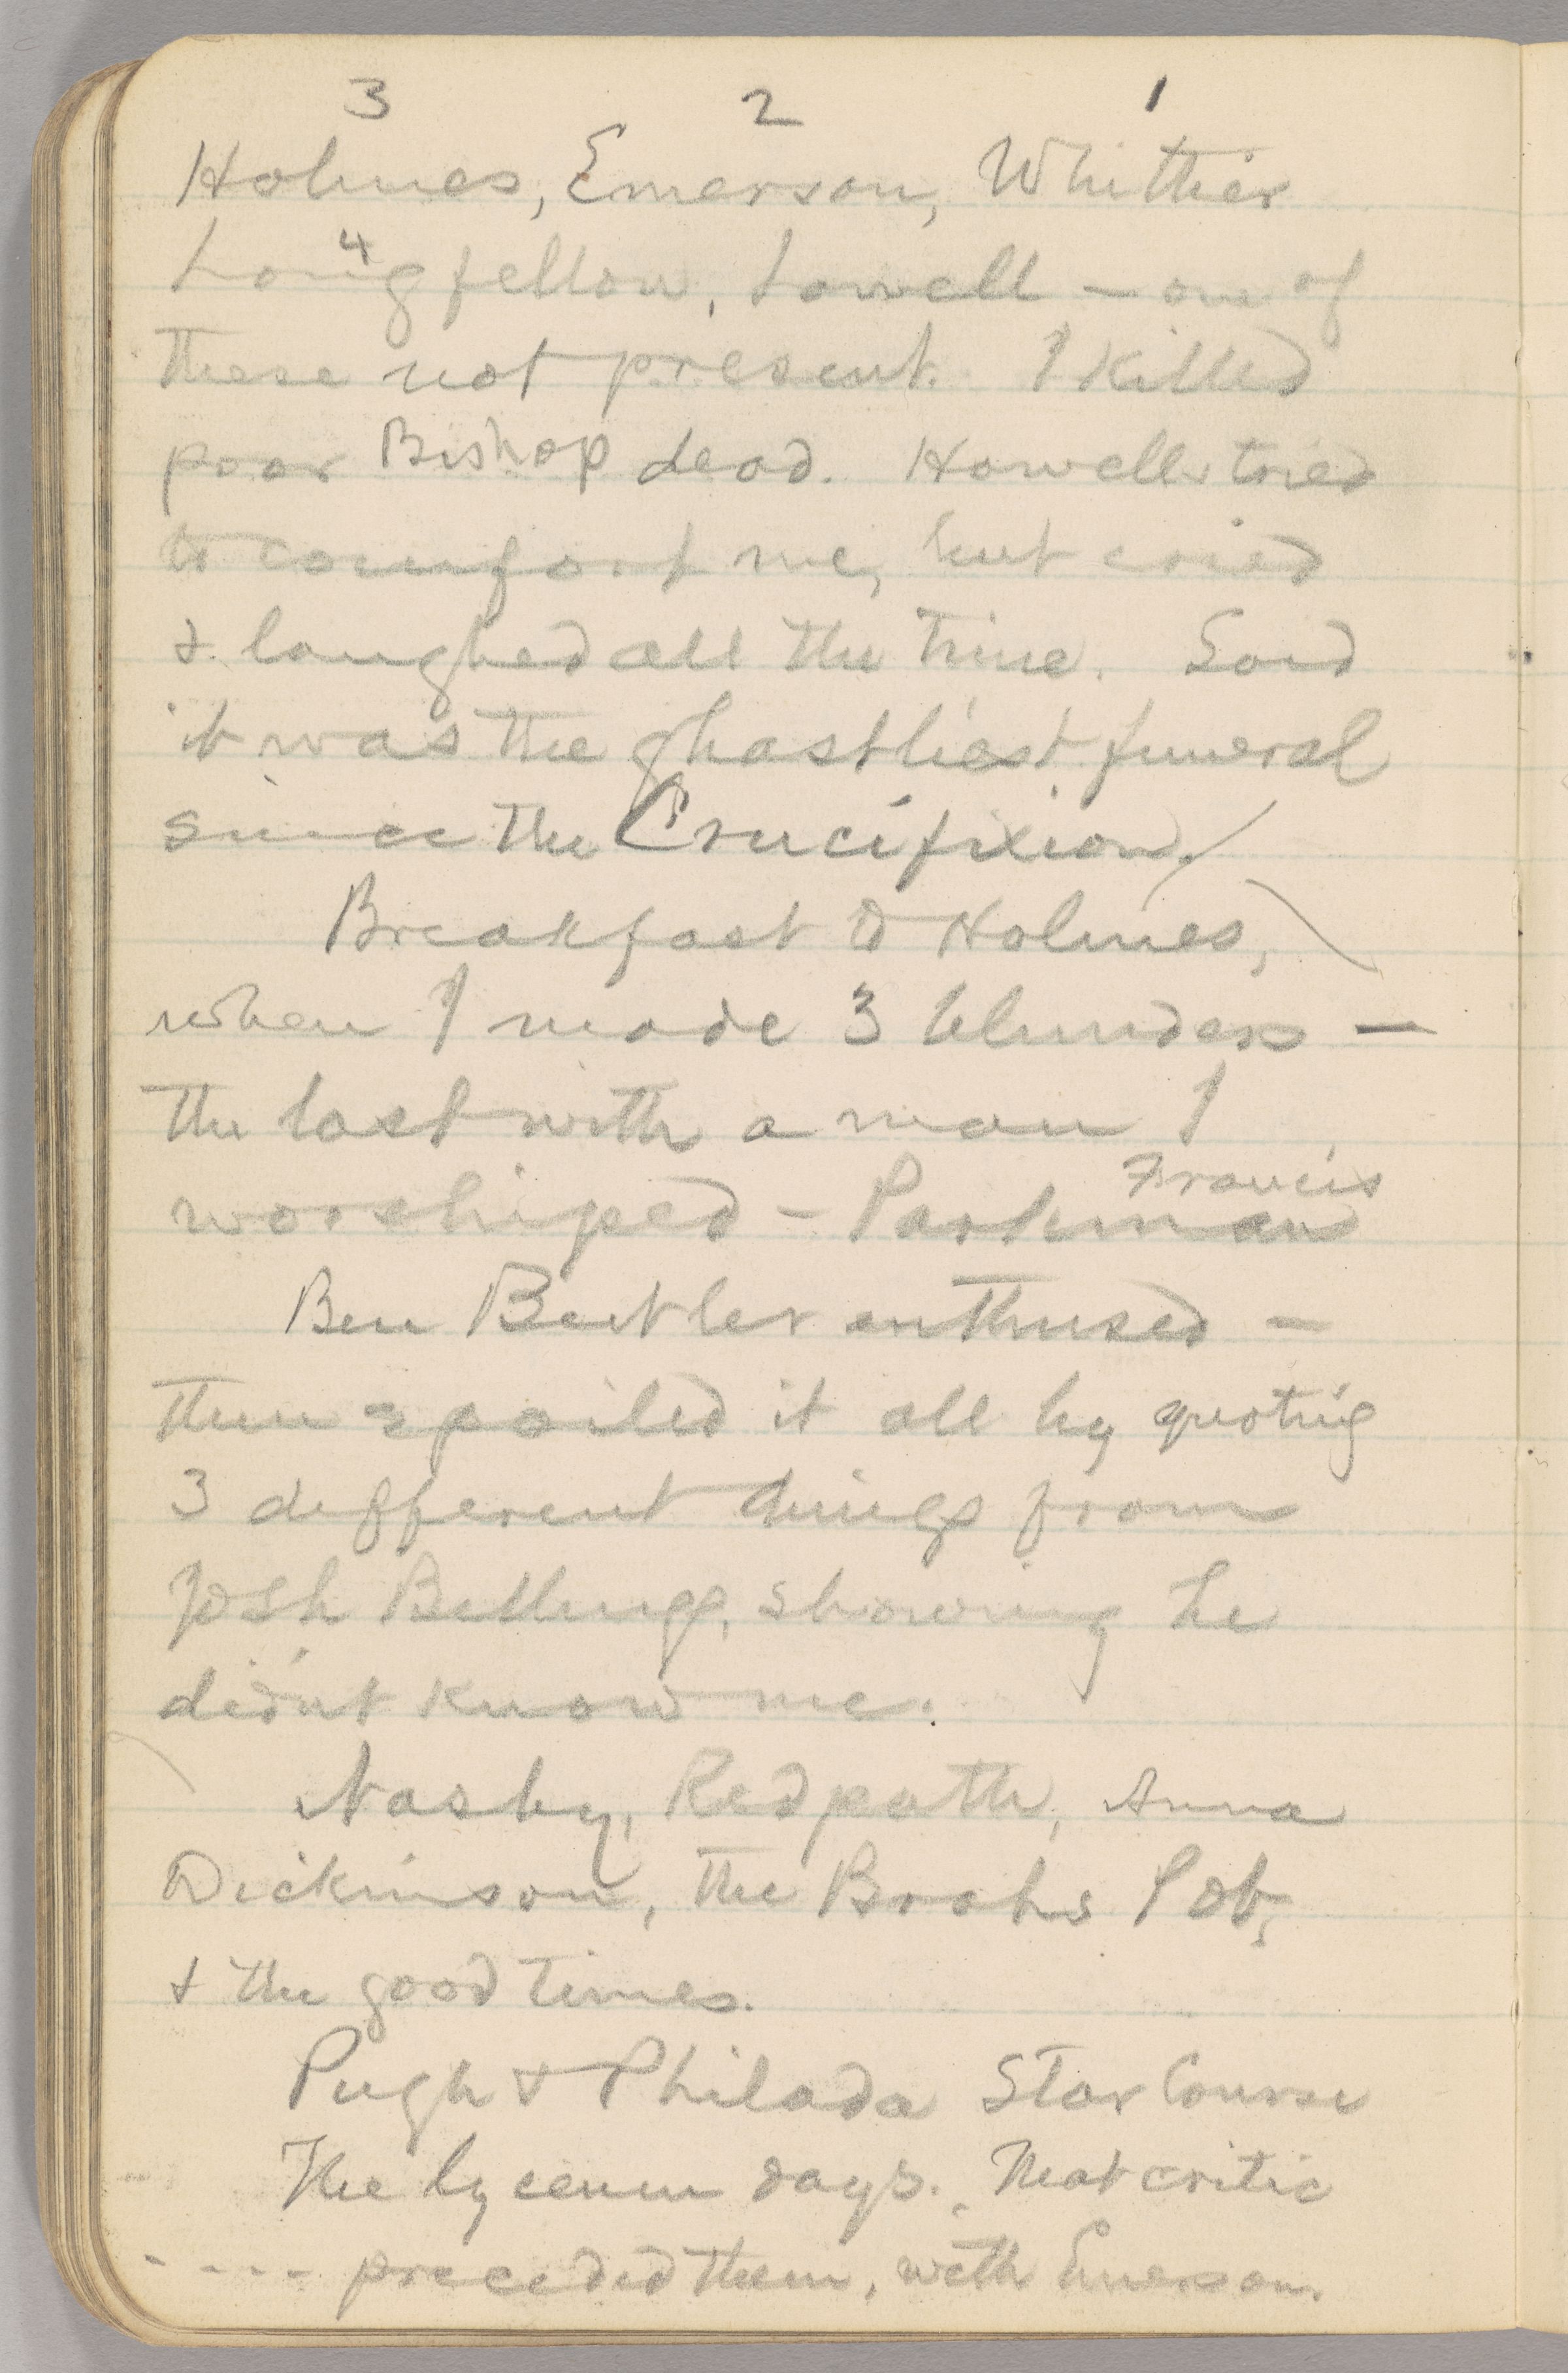 3 2 1
Holmes, Emerson, Whittier
4
Longfellow, Lowell — one of
these not present. I killed
poor Bishop dead. Howells tried
to comfort me, but cried
& laughed all the time. Said
it was the ghastliest funeral
since the Crucifixion.
Breakfast to Holmes,
when I made 3 blunders —
the last with a man I
Francis
worshiped — Parkman
Ben Butler enthused —
then spoiled it all by quoting
3 different things from
Josh Billings, showing he
didn't know me.
Nasby, Redpath, Anna
Dickinson, the Brahs Pot,
& the good times.
Pugh & Philada Star Course
The lyceum days. That critic
- - - - preceded them, with Emerson.